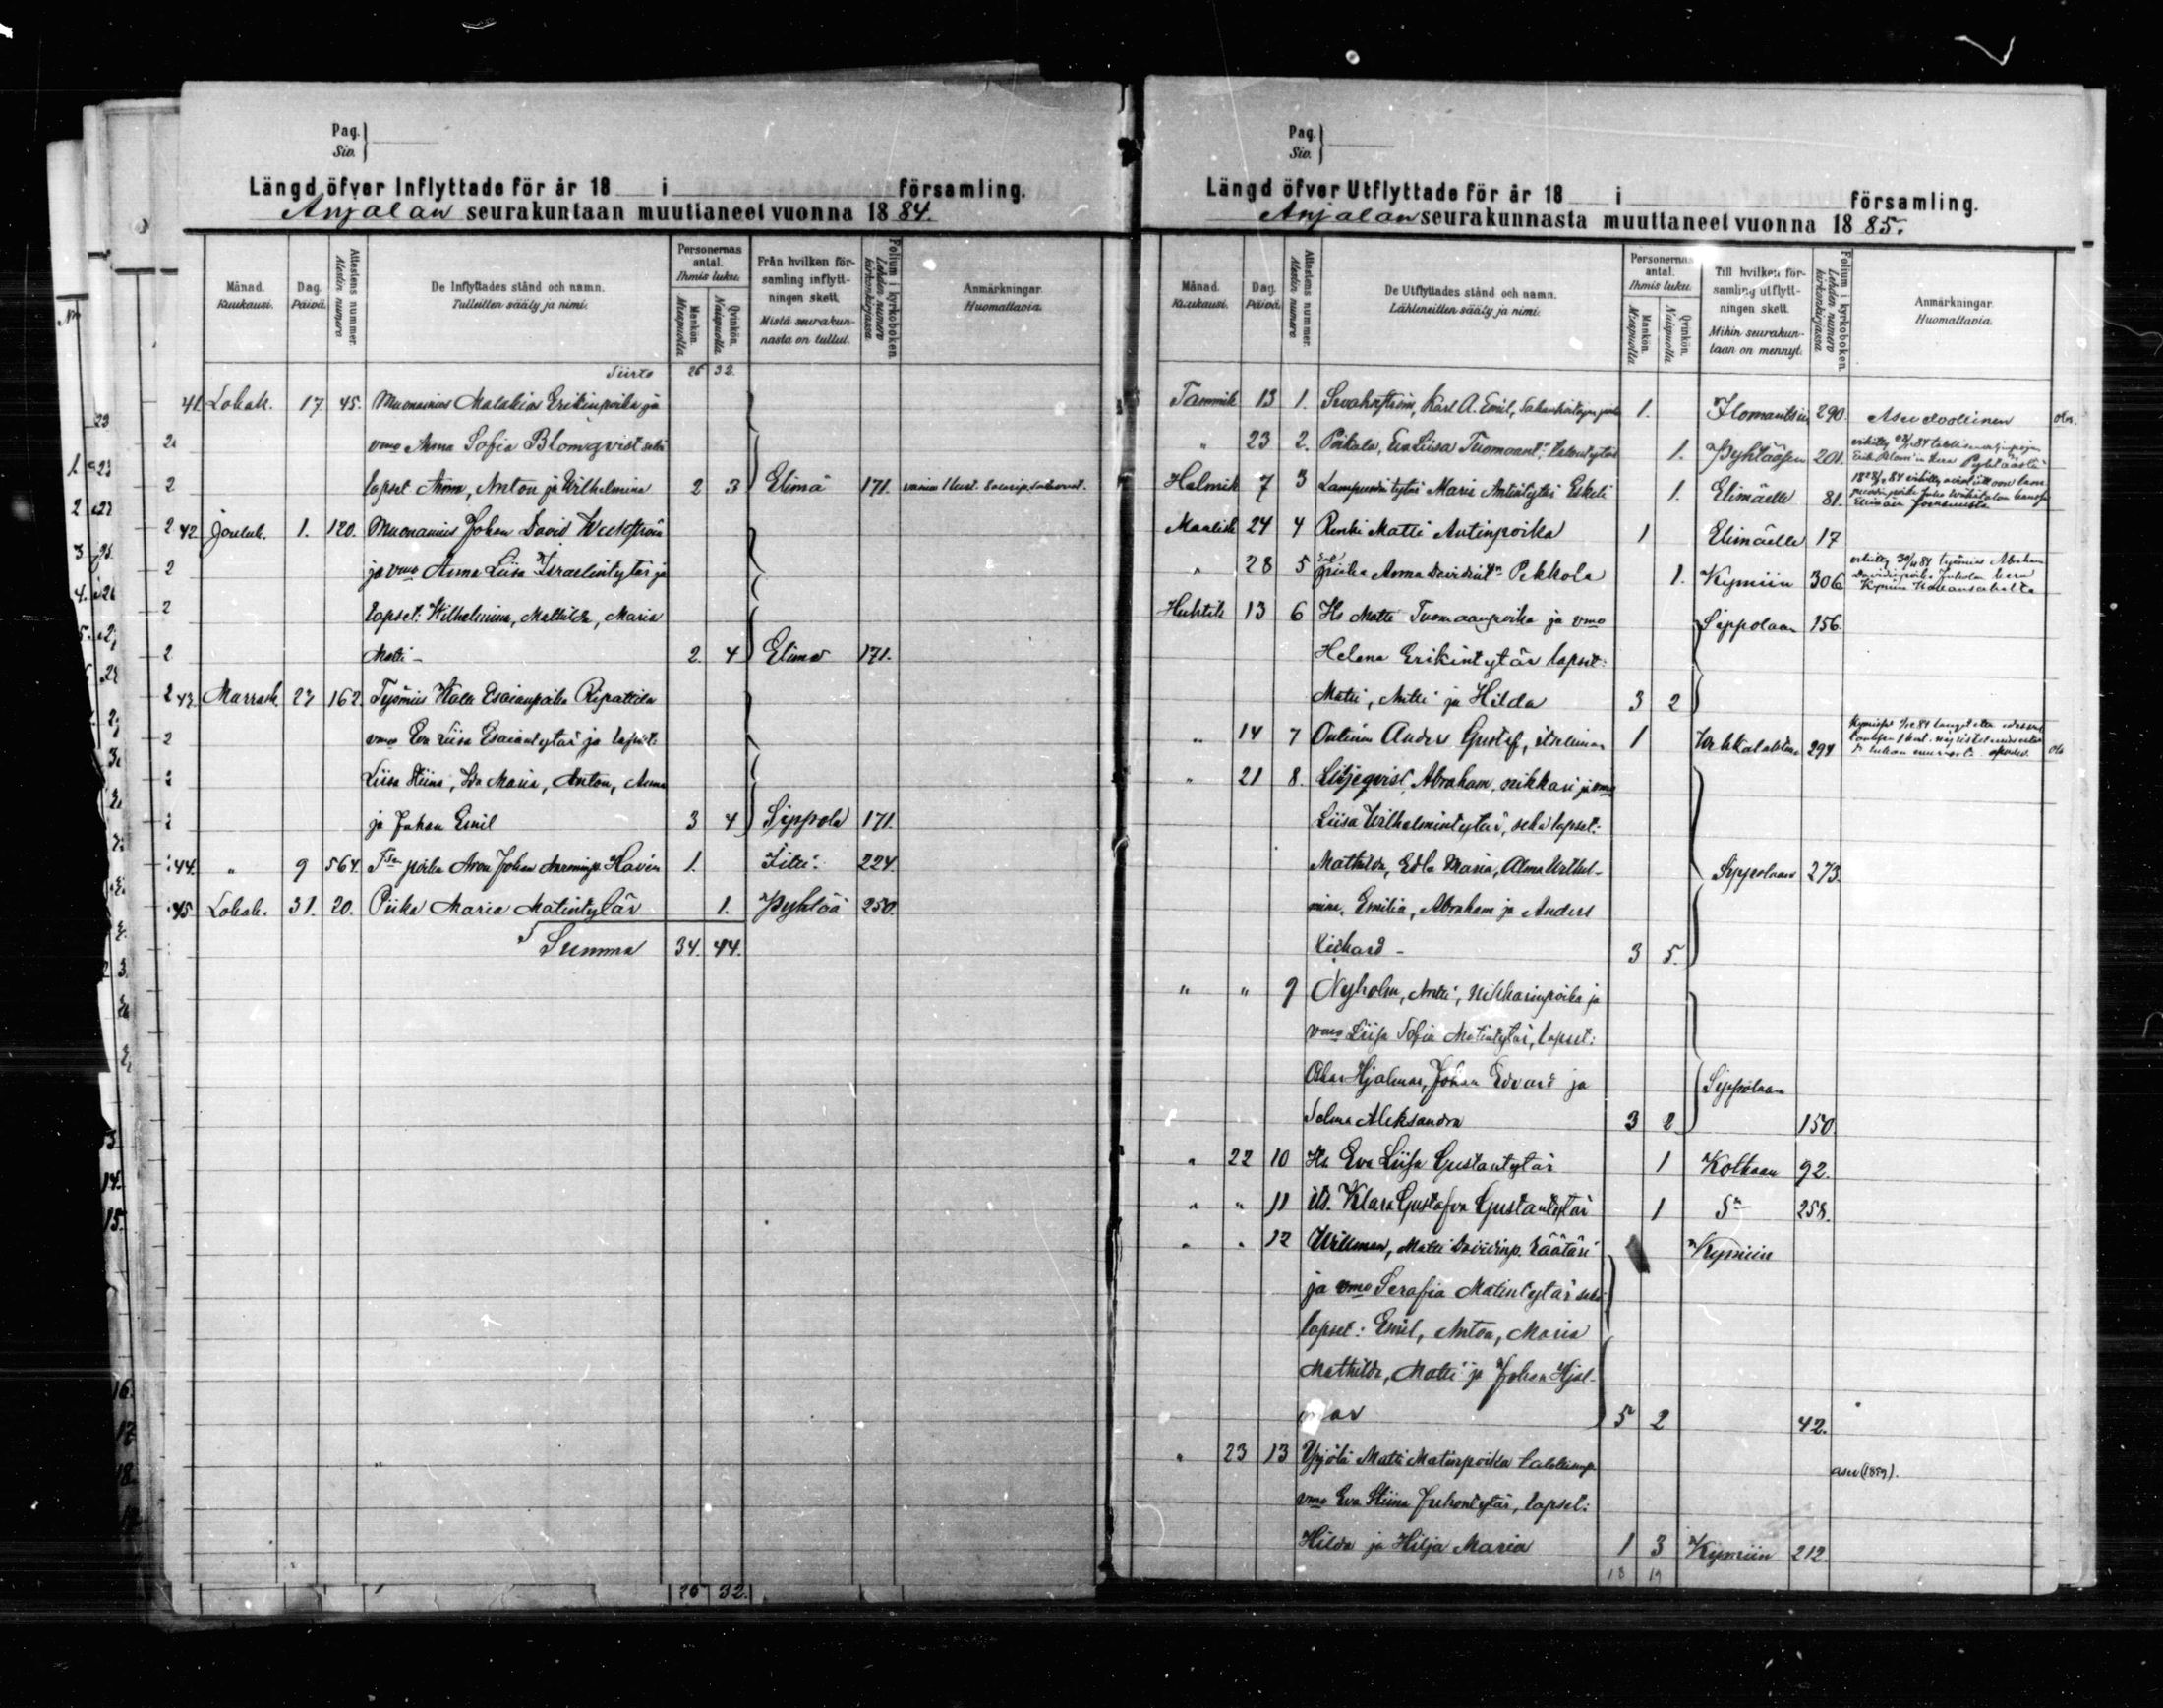 Pag.
Siv.
Längd öfver Inflyttade för år 18 i församling.
Anjalan seurakuntaan muuttaneet vuonna 1884.
Månad. Kuukausi.
Dag. Päivä.
Attestens nummer. Alestin numero
De Inflyttades stånd och namn. Tulleitten sääty ja nimi.
Personernas antal. Ihmis luku.
Mankön. Miespuolia
Qvinkön. Naispuolia
Från hvilken församling inflyttningen skett. Mistä seurakunnasta on tullut.
Folium i kyrkoboken. Lehden numero kirkonkirjassa
Anmärkningar. Huomattavia.
Siirto 26 32.
41. Lokak. 17 45. Muonamies Malakias Erikinpoika ja
vmo Anna Sofia Blomqvist sekä
lapset Anna, Anton ja Wilhelmina 2 3 Elimä 171.
42 Jouluk. 1. 120. Muonamies Johan David Weckström
ja vmo Anna Liisa Israelintytär ja
lapset: Wilhelmina, Mathilda, Maria
Matti - 2. 4 Elimä 171.
43 Marrask. 23 162. Työmies Kalle Esaianpoika Ripattila
vmo Eva Liisa Esaiantytär ja lapset:
Liisa Stiina, Ida Maria, Anton, Anna
ja Johan Emil 3 4 Sippola 171.
44. " 9 564. Johan Havén 1. Iitti 224.
45 Lokak. 31. 20. Piika Maria Matintytär 1. Pyhtää 250.
Summa 34. 44.
26 32.
Pag.
Siv.
Längd öfver Utflyttade för år 18 i församling.
Anjalan seurakunnasta muuttaneet vuonna 1885.
Månad. Kuukausi.
Dag. Päivä.
Attestens nummer. Alestin numero
De Utflyttades stånd och namn. Lähteneitten sääty ja nimi.
Personernas antal. Ihmis luku.
Mankön. Miespuolia
Qvinkön. Naispuolia
Till hvilken församling utflyttningen skett. Mihin seurakuntaan on mennyt.
Folium i kyrkoboken. Lehden numero kirkonkirjassa
Anmärkningar. Huomattavia.
Tammik 13 1. Karl A. Emil, 1. Ilomantsiin 290.
" 23 2. Poikala, Eva Liisa 1. Pyhtääsen 201.
Helmik 7 3 Lampuodintytär Maria Antintytär Eskeli 1. Elimäelle 81.
Maalisk 24 4 Renki Matti Antinpoika 1 Elimäelle 17
" 28 5 piika Anna Pekkola 1. Kymiin 306
Huhtik 13 6 Its Matti Tuomaanpoika ja vmo Sippolaan 156.
Helena Erikintytär lapset:
Matti, Antti ja Hilda 3 2
" 14 7 Anders Gustaf, itsellinen 1 294
" 21 8. Liljeqvist, Abraham, nikkari ja vmo
Liisa Wilhelmintytär, sekä lapset:
Mathilda, Edla Maria, Alma Wilhel- Sippolaan 273.
mina, Emilia, Abraham ja Anders
Richard - 3 5.
" " 9 Nyholm, Antti, Nikkarinpoika ja
vmo Liisa Sofia Matintytär, lapset:
Oskar Hjalmar, Johan Edvard ja Sippolaan
Selma Aleksandra 3 2 150.
" 22 10 Its Eva Liisa Gustantytär 1 Kotkaan 92.
" " 11 its. Klara Gustafva Gustantytär 1 258.
" " 12 Willman, Matti Davidinp. Räätäri Kymiin
ja vmo Serafia Matintytär sekä
lapset: Emil, Anton, Maria
Mathilda, Matti ja Johan Hjal-
mar 5 2 42.
" 23 13 Yrjölä Matti Matinpoika
vmo Eva Stiina Juhontytär, lapset:
Hilda ja Hilja Maria 1 3 Kymiin 212.
18 19